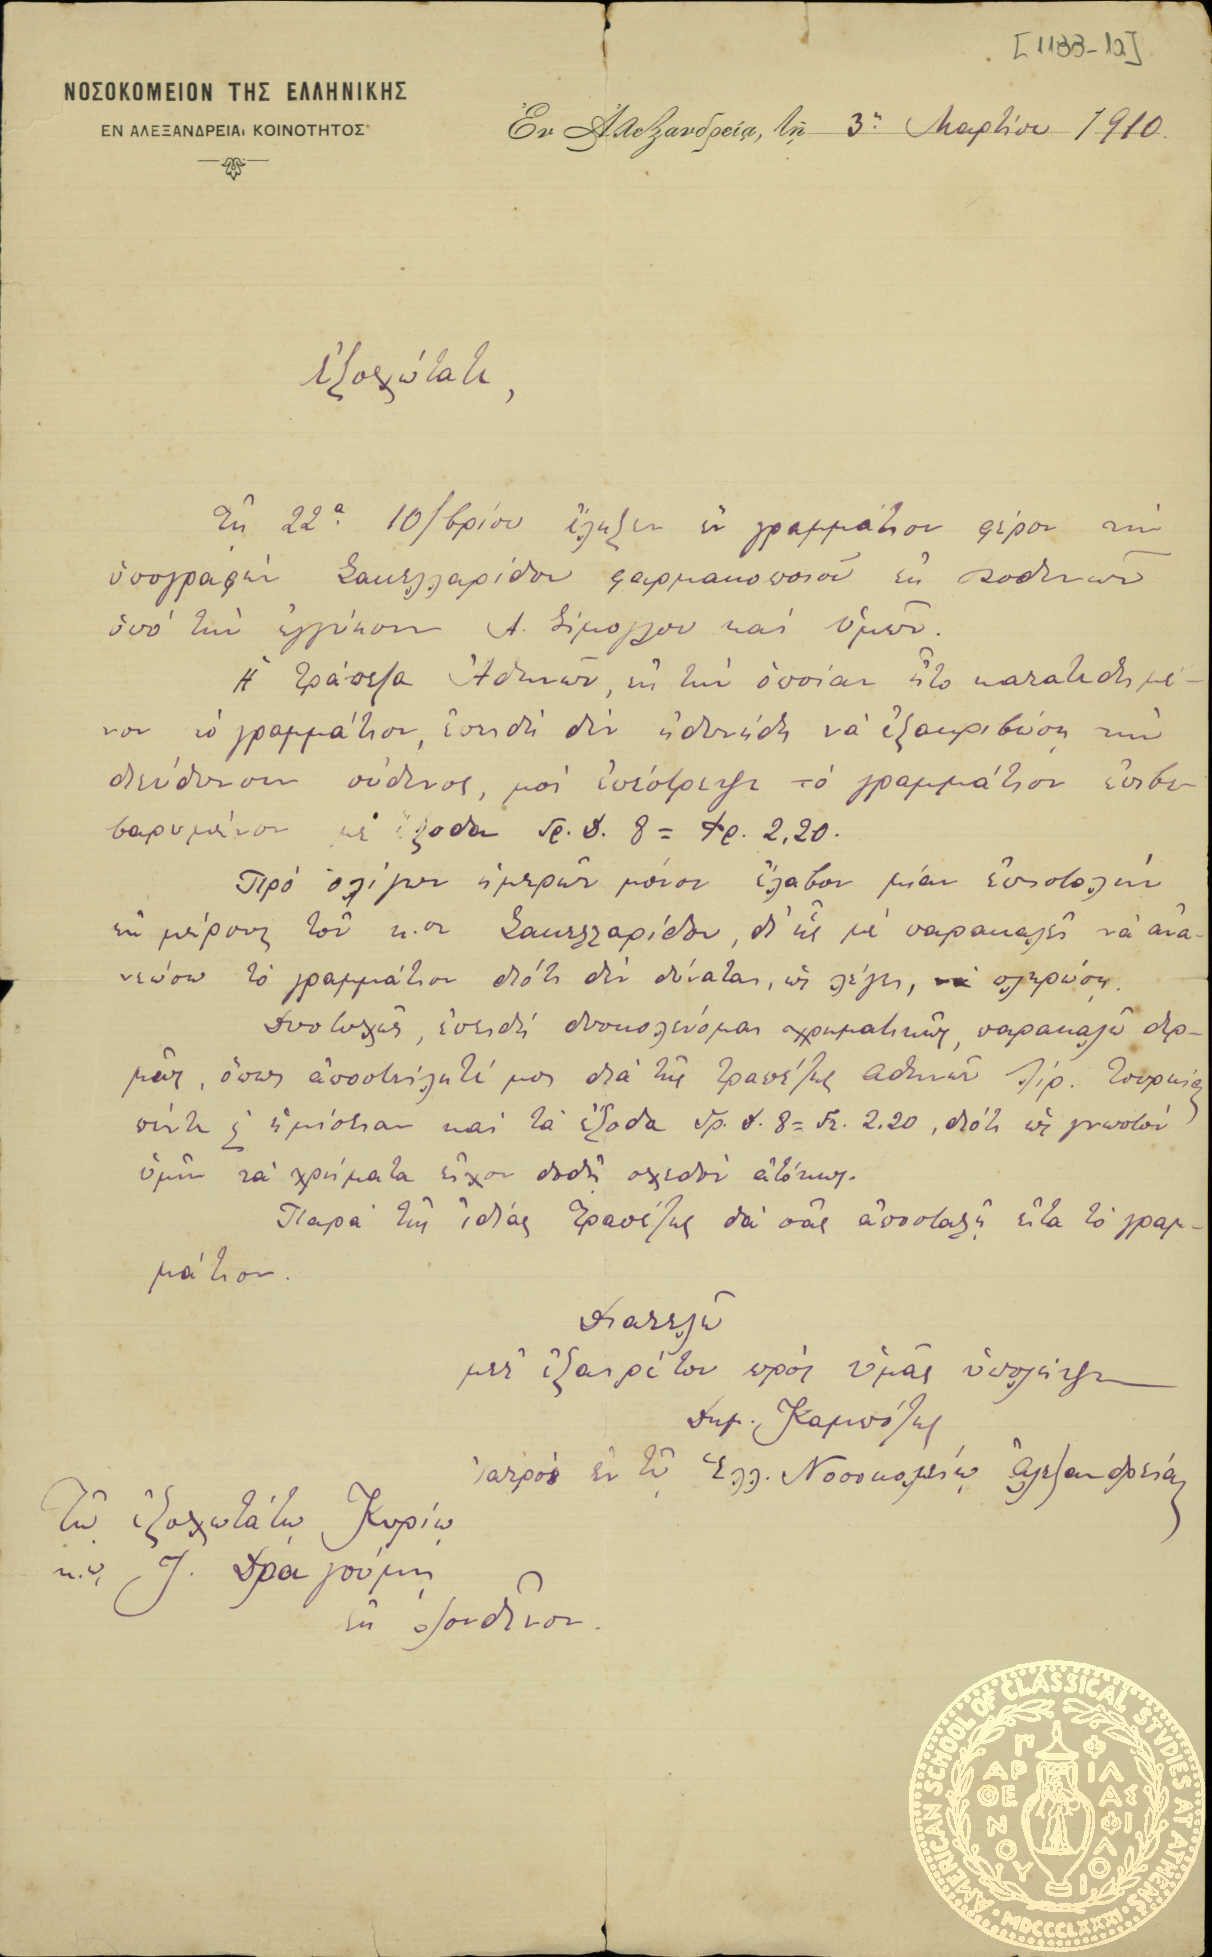 [1133-12]
ΝΟΣΟΚΟΜΕΙΟΝ ΤΗΣ ΕΛΛΗΝΙΚΗΣ
ΕΝ ΑΛΕΞΑΝΔΡΕΙΑι ΚΟΙΝΟΤΗΤΟΣ
Ἐν Ἀλεξανδρείᾳ, τῇ 3ῃ Μαρτίου 1910.
Ἐξοχώτατε,
Τῇ 22ᾳ 10/βρίου ἔληξεν ἓν γραμμάτιον φέρον τὴν
ὑπογραφὴν Σακελλαρίδου φαρμακοποιοῦ ἐκ
ὑπὸ τὴν ἐγγύησιν Α. καὶ ὑμῶν.
Ἡ τράπεζα Ἀθηνῶν, εἰς τὴν ὁποίαν ἦτο κατατεθημέ-
νον τὸ γραμμάτιον, ἐπειδὴ δὲν ἠδυνήθη νὰ ἐξακριβώσῃ τὴν
διεύθυνσιν οὐδενός, μοὶ ἐπέστρεψε τὸ γραμμάτιον ἐπιβε-
βαρυμένον μὲ ἔξοδα δρ. Δ. 8 = Φρ. 2,20.
Πρὸ ὀλίγων ἡμερῶν μόνον ἔλαβον μίαν ἐπιστολὴν
ἐκ μέρους τοῦ κ.ου Σακελλαρίδου, δι' ἧς μὲ παρακαλεῖ νὰ ἀνα-
νεώσω τὸ γραμμάτιον διότι δὲν δύναται, ὡς λέγει, νὰ πληρώσῃ.
Δυστυχῶς, ἐπειδὴ δυσκολεύομαι χρηματικῶς, παρακαλῶ θερ-
μῶς, ὅπως ἀποστείλητέ μοι διὰ τῆς τραπέζης Ἀθηνῶν λίρ. Τουρκίας
πέντε ἡμίσειαν καὶ τὰ ἔξοδα δρ. Δ. 8 = Φρ. 2.20, διότι ὡς γνωστὸν
ὑμῖν τὰ χρήματα εἶχον δοθῆ σχεδὸν ἀτόκως.
Παρὰ τῆς ἰδίας Τραπέζης θὰ σᾶς ἀποσταλῇ εἶτα τὸ γραμ-
μάτιον.
Διατελῶ
μετ' ἐξαιρέτου πρὸς ὑμᾶς ὑπολήψεως
Δημ. Καμπόζης
ἰατρὸς ἐν τῷ Ἑλλ. Νοσοκομείῳ Ἀλεξανδρείας
Τῷ ἐξοχωτάτῳ Κυρίῳ
κ.ῳ Ἰ. Δραγούμῃ
εἰς Λονδῖνον.
AMERICAN SCHOOL OF CLASSICAL STUDIES AT ATHENS
ΠΑΡΘΕΝΟΥ ΦΙΛΑΣ ΦΙΛΟΙ
MDCCCLXXXI